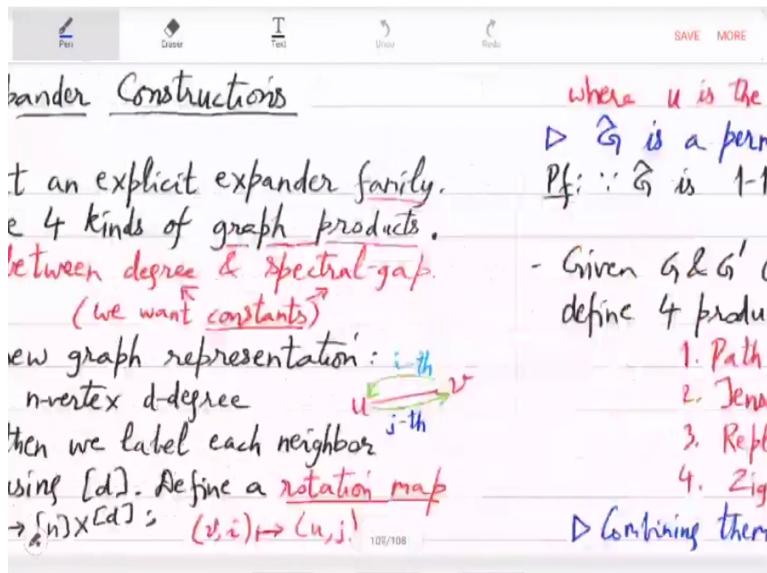 Pen Eraser Text Undo Redo SAVE MORE
pander Constructions
t an explicit expander family.
e 4 kinds of graph products.
between degree & spectral-gap.
(we want constants)
ew graph representation: i-th
n-vertex d-degree u v
j-th
then we label each neighbor
using [d]. Define a rotation map
→[n]×[d]: (v,i)↦(u,j)
107/108
where u is the
▷ Ĝ is a perm
Pf: ∵ Ĝ is 1-1
- Given G & G'
define 4 produ
1. Path
2. Tens
3. Repl
4. Zig
▷ Combining them